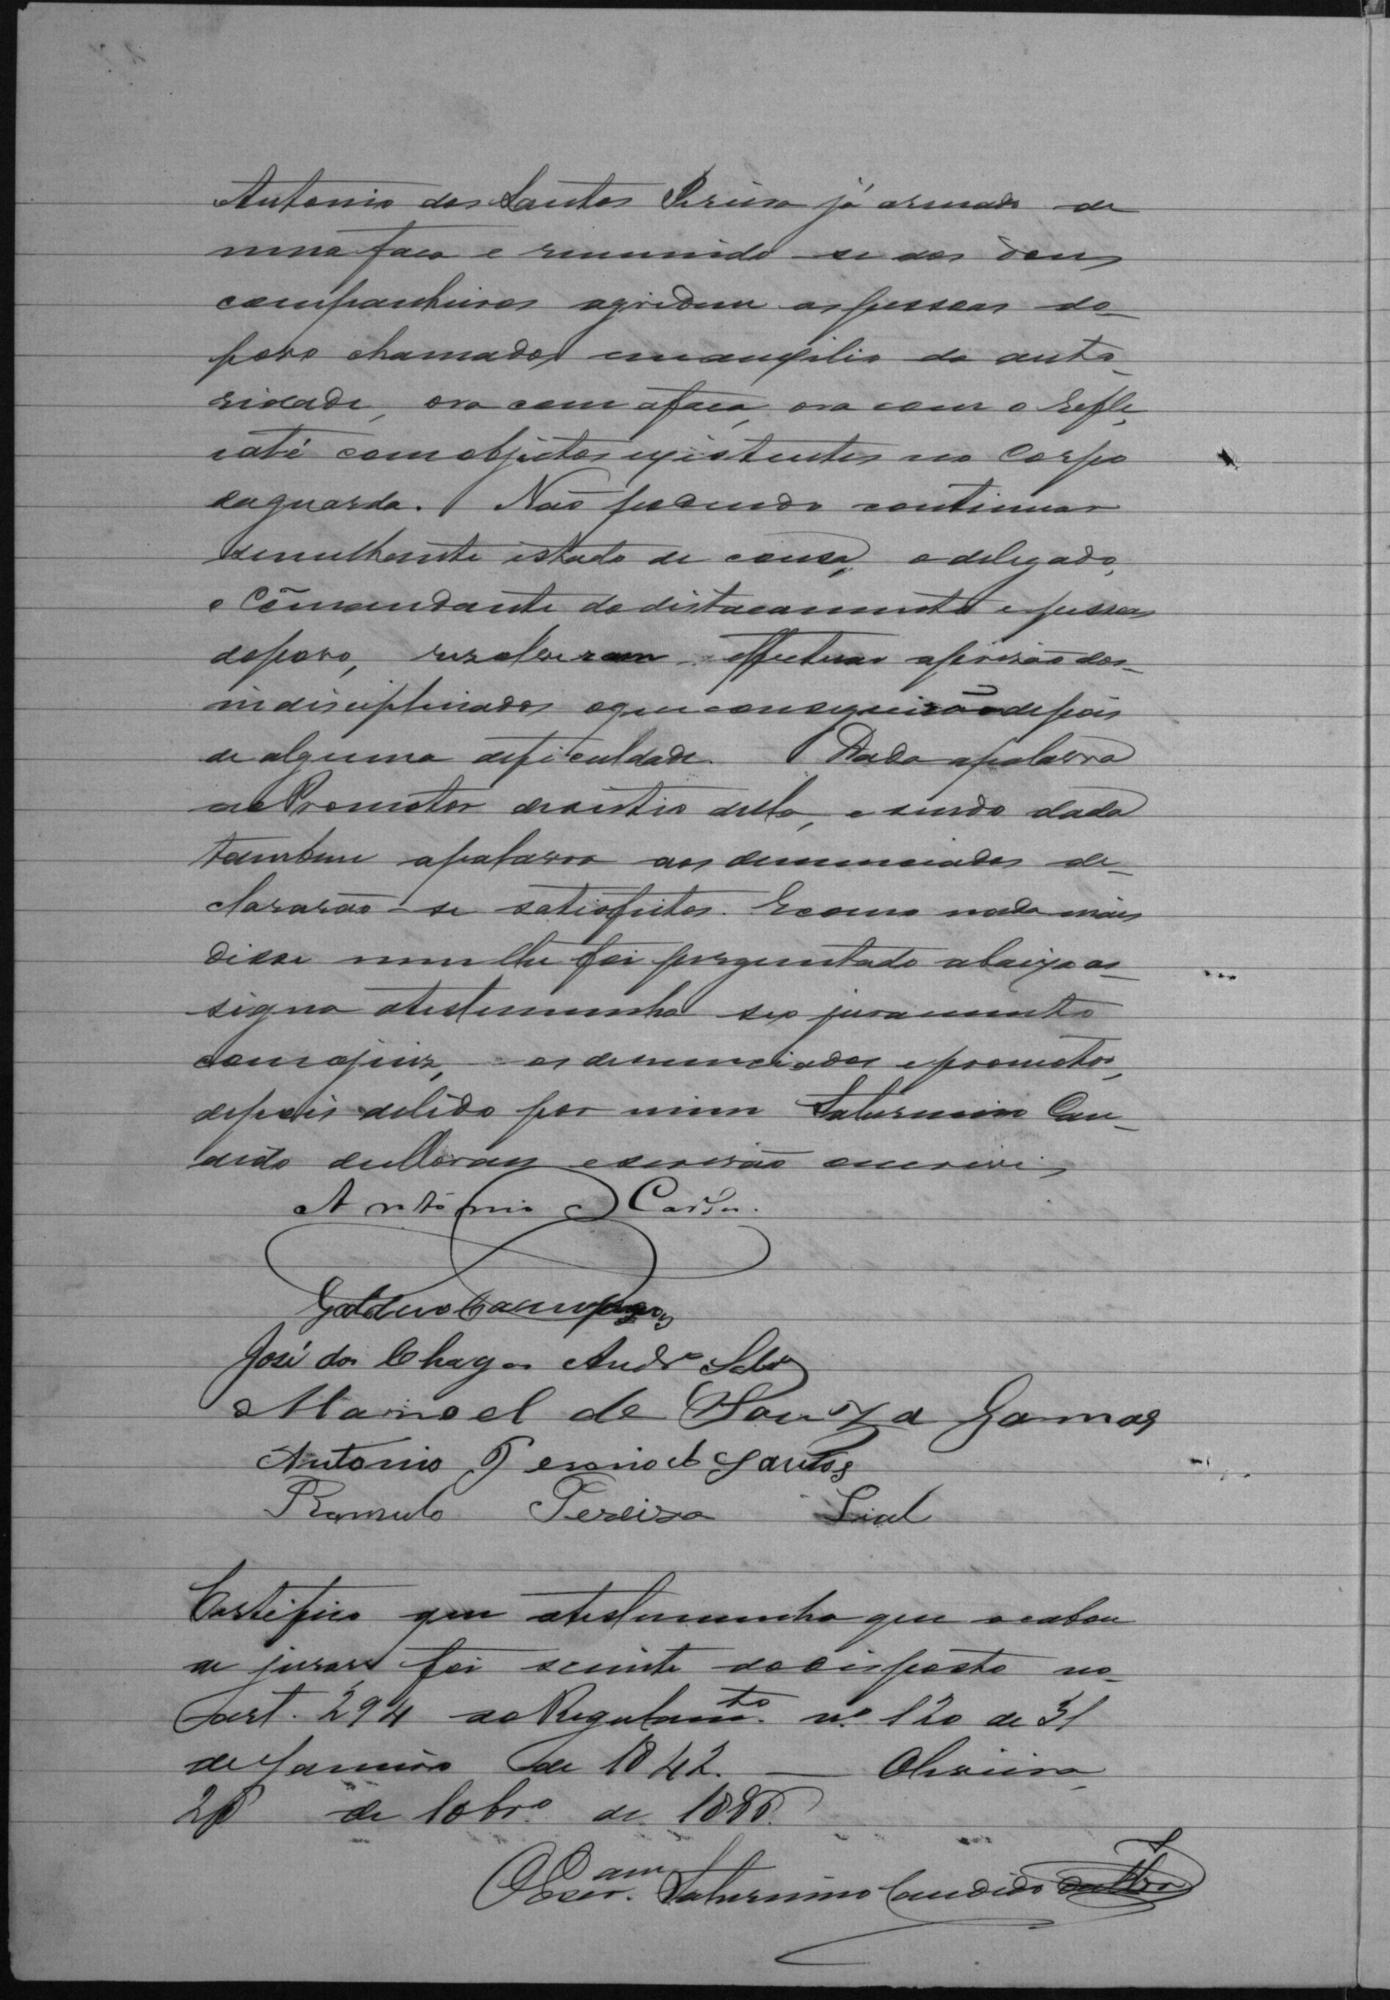 Antonio dos Santos já armado de
uma faca e reunindo-se aos dous
companheiros agridem as pessoas do
povo chamados em auxilio da auto-
ridade, ora com a faca, ora com o refle,
e até com objectos existentes no Corpo
da guarda. Não podendo continuar
semelhante estado de cousa, o delegado,
o Commandante do distacamento e pessoas
do povo, resolveram effectuar a prisão dos
indisciplinados o que conseguirão depois
de alguma deficuldade. Dada a palavra
ao Promotor desistio della, e sendo dada
tambem a palavra aos denunciados de-
clararão-se satisfeitos. E como nada mais
disse nem lhe foi perguntado abaixo as-
signa a testemunha seo juramento
com o juiz, os denunciados e promotor,
depois de lido por mim Saturnino Can-
dido escrivão escrevi
Antonio
Galdino Campos
José das Chagas Andr.e
Manoel de Souza Gamas
Antonio Santos
Romulo Pereira Lial
Certifico que a testemunha que acabou
de jurar foi sciente do disposto no
art. 294 do Regulam.to n.o 120 de 31
de Janeiro de 1842. — Oliveira,
de 10br.o de
O Escr.am Saturnino Candido